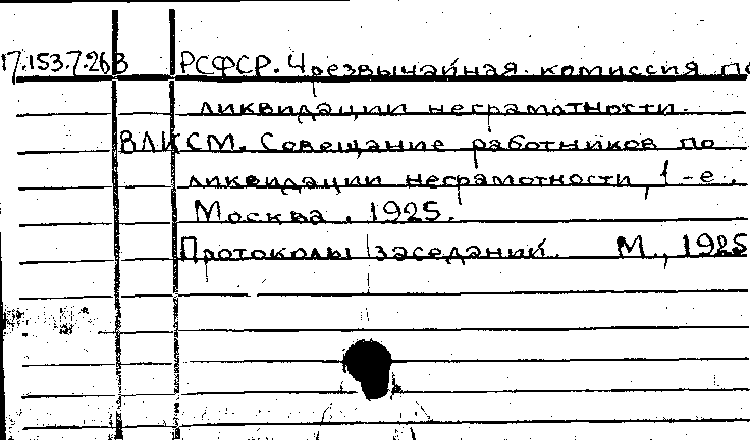 17.153.7.263 РСФСР. Чрезвычайная комиссия по
ликвидации неграмотности.
ВЛКСМ. Совещание работников по
ликвидации неграмотности, 1-е.
Москва. 1925.
Протоколы заседаний. М., 1925